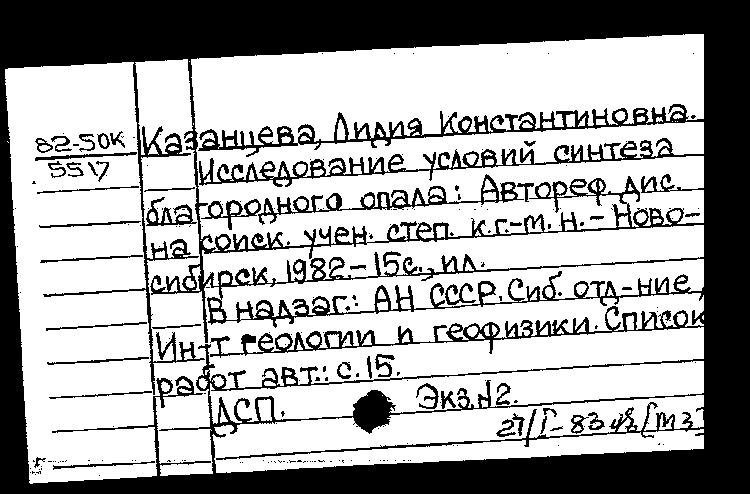 82-50К
5517
Казанцева, Лидия Константиновна.
Исследование условий синтеза
благородного опала: Автореф. дис.
на соиск. учен. степ. к.г.-м.н. - Ново-
сибирск, 1982. - 15с., ил.
В надзаг.: АН СССР. Сиб. отд-ние,
Ин-т геологии и геофизики. Список
работ авт.: с.15.
ДСП. Экз.N2.
27/I-83